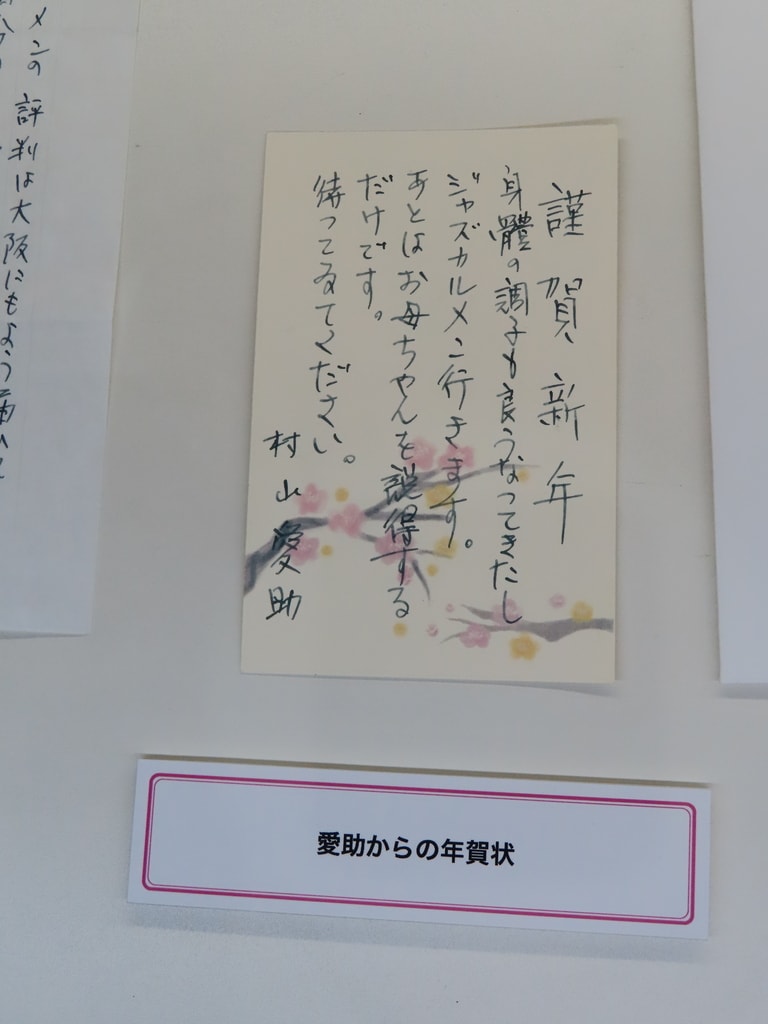 謹賀新年
身體の調子も良うなってきたし
ジャズカルメン行きます。
あとはお母ちゃんを説得する
だけです。
待ってゐてください。
村山愛助
メンの評判は大阪にもよう
愛助からの年賀状